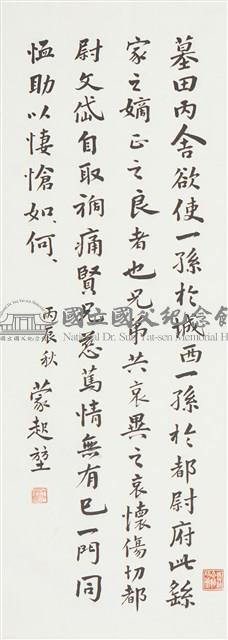 墓田丙舍欲使一孫於城西一孫於都尉府此繇
家之嫡正之良者也兄弟共哀異之哀懷傷切都
尉文岱自取禍痛賢兄慈篤情無有已一門同
恤助以悽愴如何、
丙辰秋 蒙超堃
國立國父紀念館
National Dr. Sun Yat-sen Memorial Hall